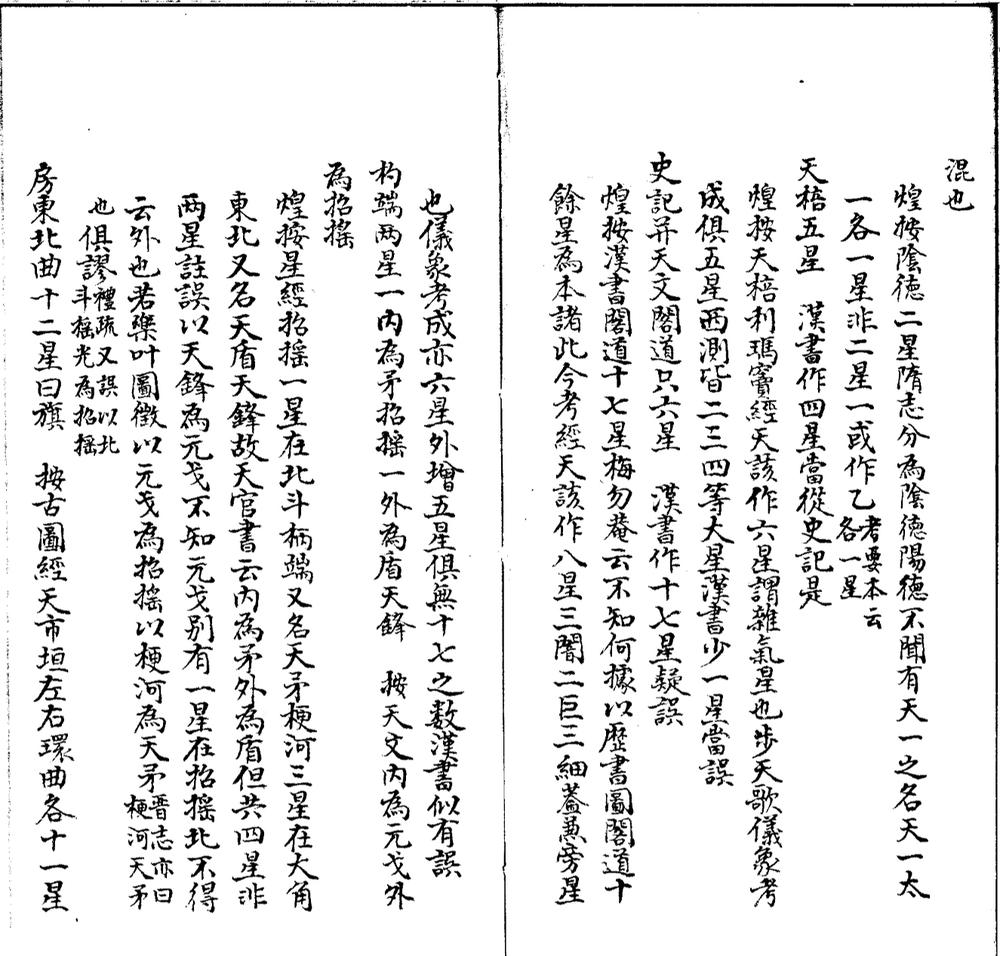 混也
煌按陰德二星隋志分為陰德陽德不聞有天一之名天一太
一各一星非二星一或作乙考要本云各一星
天棓五星　漢書作四星當從史記是
煌按天棓利瑪竇經天該作六星謂雜氣星也步天歌儀象考
成俱五星西測皆二三四等大星漢書少一星當誤
史記并天文閣道只六星　漢書作十七星疑誤
煌按漢書閣道十七星梅勿菴云不知何據以歷書圖閣道十
餘星為本諸此今考經天該作八星三闇二巨三細蓋兼旁星
也儀象考成亦六星外增五星俱無十七之数漢書似有誤
杓端两星一内為矛招搖一外為盾天鋒　按天文内為元戈外
為招搖
煌按星經招搖一星在北斗柄端又名天矛梗河三星在大角
東北又名天盾天鋒故天官書云内為矛外為盾但共四星非
两星註誤以天鋒為元戈不知元戈别有一星在招搖北不得
云外也若樂叶圖徵以元戈為招搖以梗河為天矛晋志亦曰梗河天矛
也俱謬禮疏又誤以北斗搖光為招搖
房東北曲十二星曰旗　按古圖經天市垣左右環曲各十一星